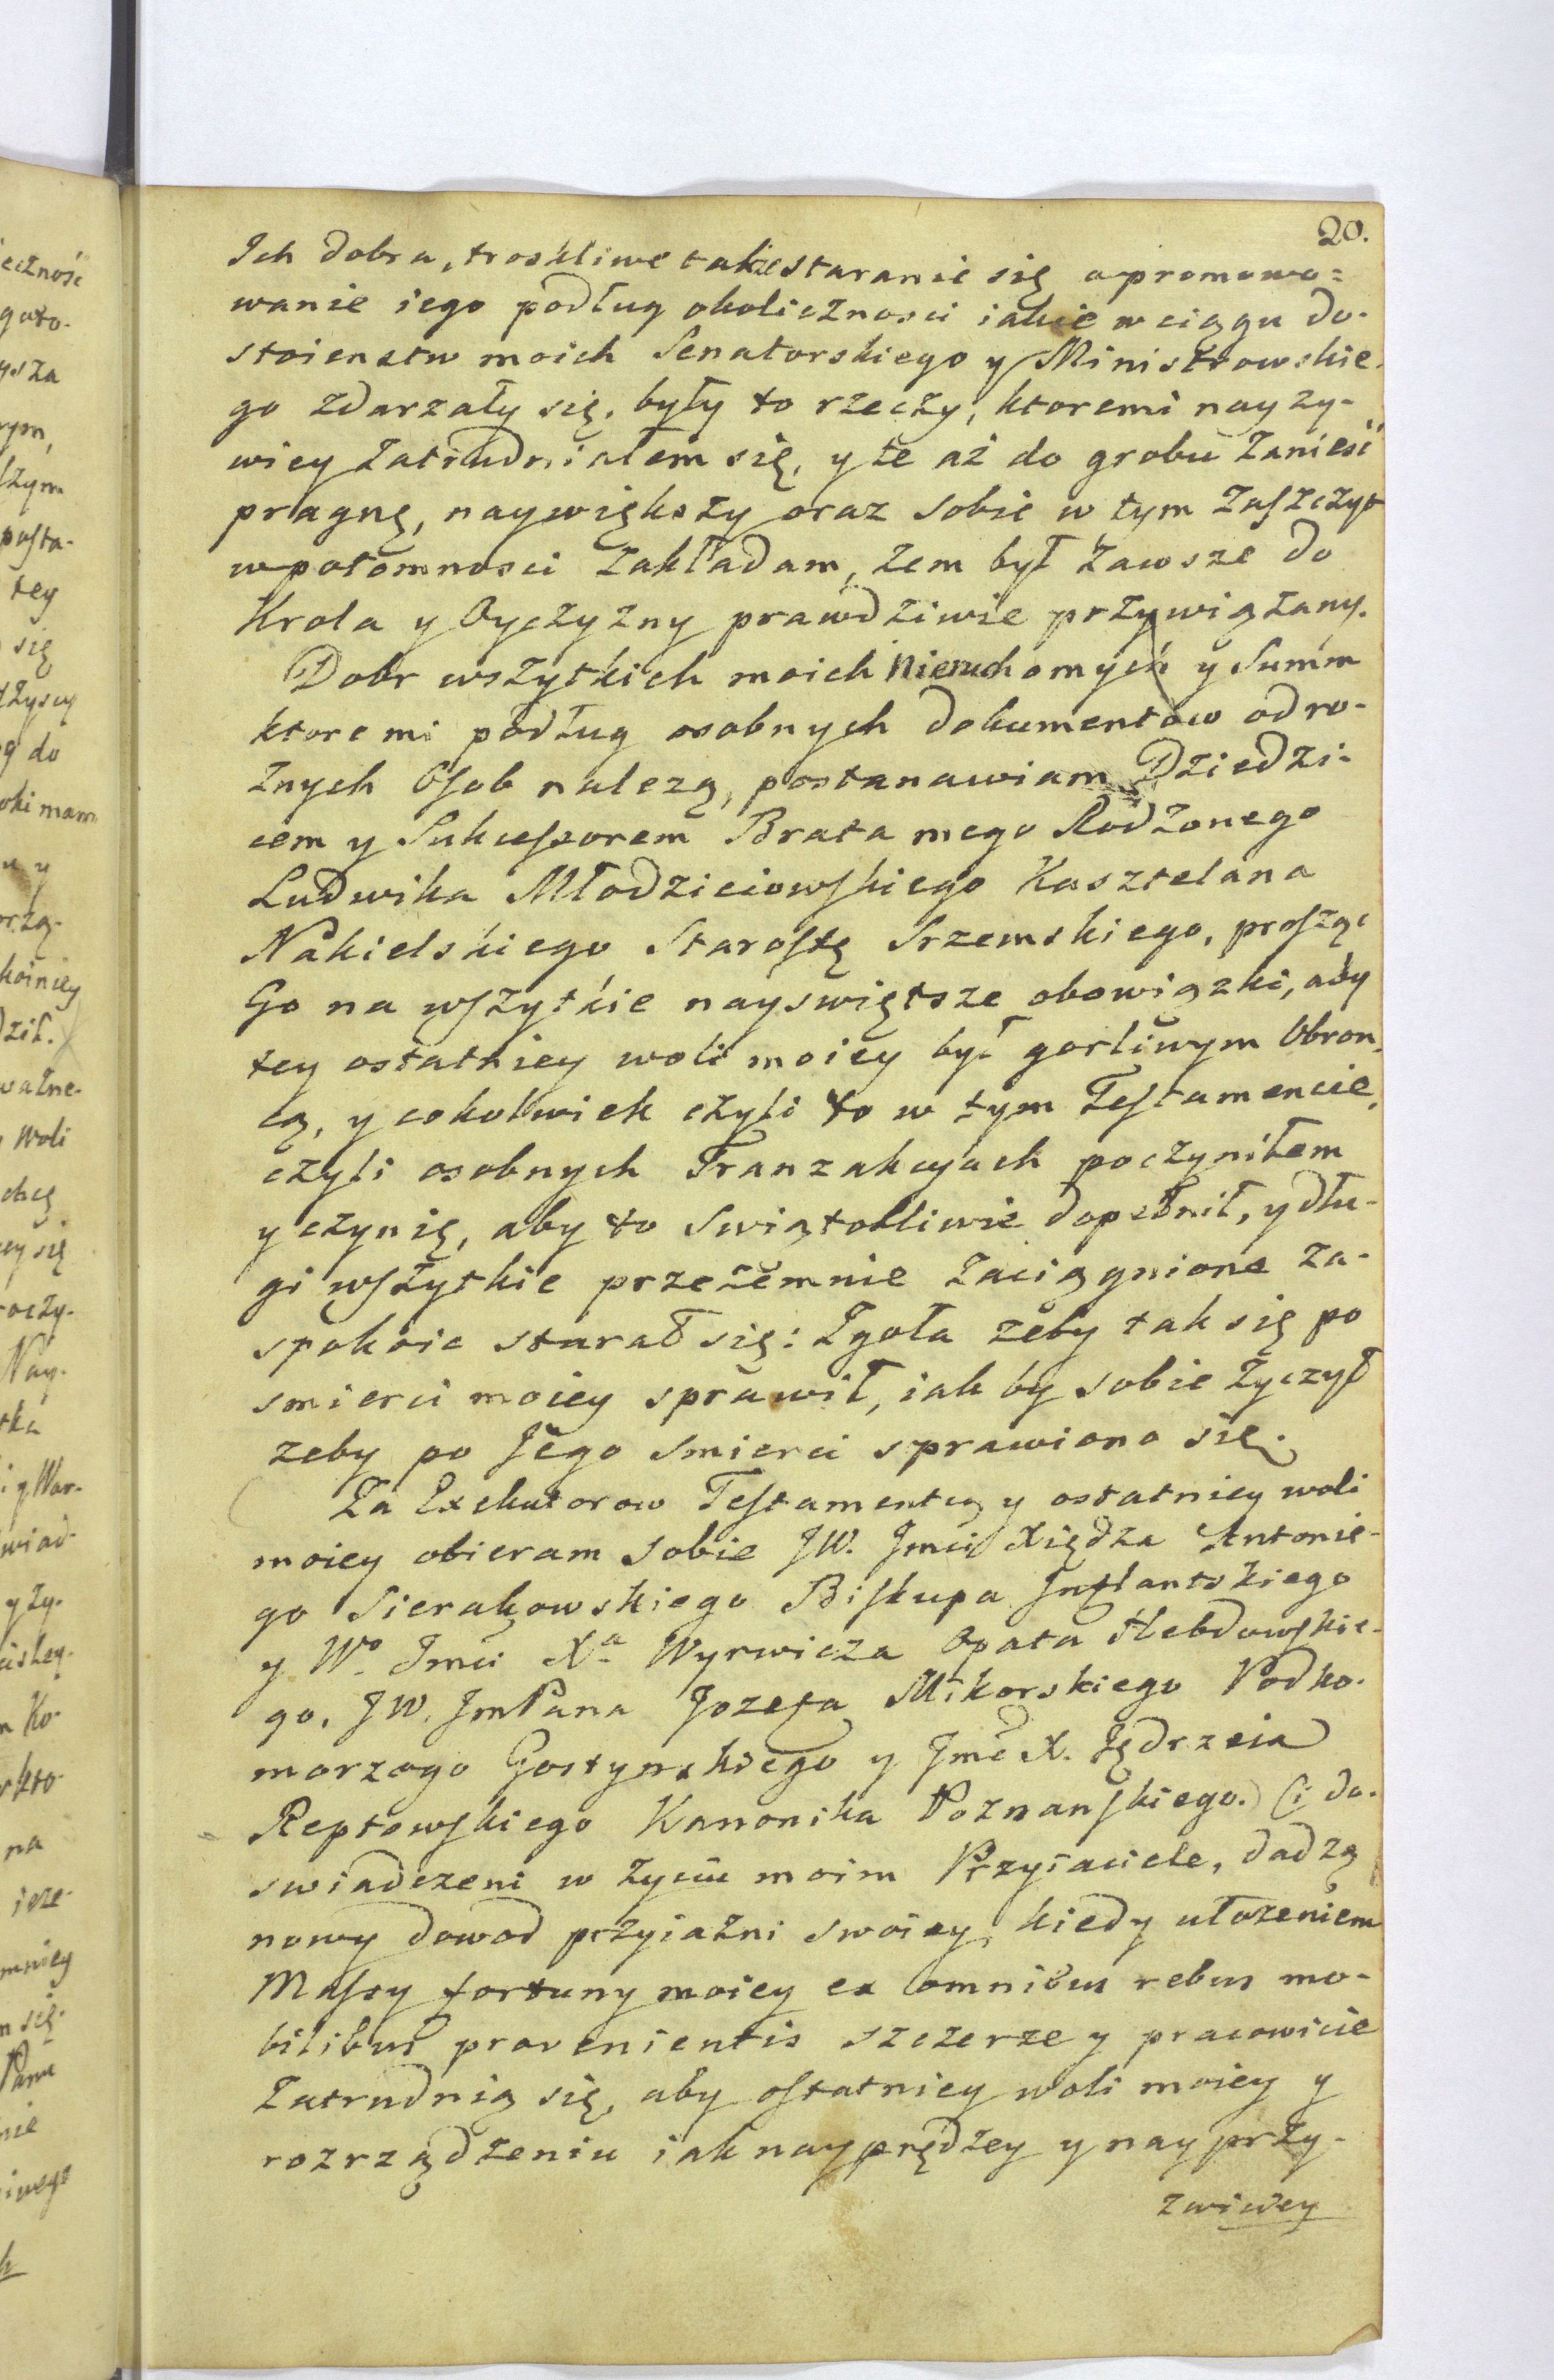 20.
Ich dobra, troskliwe takze staranie się o promowo=
wanie iego podług okolicznosci iakie w ciągu do-
stoienstw moich Senatorskiego y Ministrowskie-
go zdarzały się, były to rzeczy, ktoremi nayzy-
wiey zatrudniałem się, y te aż do grobu zanieść
pragnę, naywiększy oraz sobie w tym zaszczyt
w potomnosci zakładam, żem był zawsze do
Krola y Oyczyzny prawdziwie przywiązany.
Dobr wszytkich moich Nieruchomych y Summ
ktore mi podług osobnych dokumentow od ro-
żnych Osob nalezą, postanawiam Dziedzi-
cem y Sukcessorem Brata mego Rodzonego
Ludwika Młodzieiowskiego Kasztelana
Nakielskiego Starostę Srzemskiego, prosząc
Go na wszytkie nayswiętsze obowiązki, aby
tey ostatniey woli moiey był gorliwym Obron-
cą, y cokolwiek czyli to w tym Testamencie,
czyli osobnych Tranzakcyach poczyniłem
y czynię, aby to Swiątobliwie dopełnił, y dłu-
gi wszytkie przezemnie zaciągnione za-
spokoic starał się: Zgoła zeby tak się po
smierci moiey sprawił, iak by sobie życzył
zeby po Jego Smierci sprawiono się.
Za Exekutorow Testamentu y ostatniey woli
moiey obieram sobie JW. Jmci Xiędza Antonie-
go Sierakowskiego Biskupa Inflantskiego
y Wo Jmci Xa Wyrwicza Opata Hebdowskie-
go, JW. JmPana Jozefa Mikorskiego Podko-
morzego Gostynskiego y Jmć X. Jędrzeia
Reptowskiego Kanonika Poznanskiego. Ci do-
swiadczeni w życiu moim Przyiaciele, dadzą
nowy dowod przyiaźni swoiey, kiedy ułożeniem
Massy fortuny moiey ex omnibus rebus mo-
bilibus provenientis szczerze y pracowicie
zatrudnią się, aby ostatniey woli moiey y
rozrządzeniu iak nayprędzey y nayprzy-
zwiciey